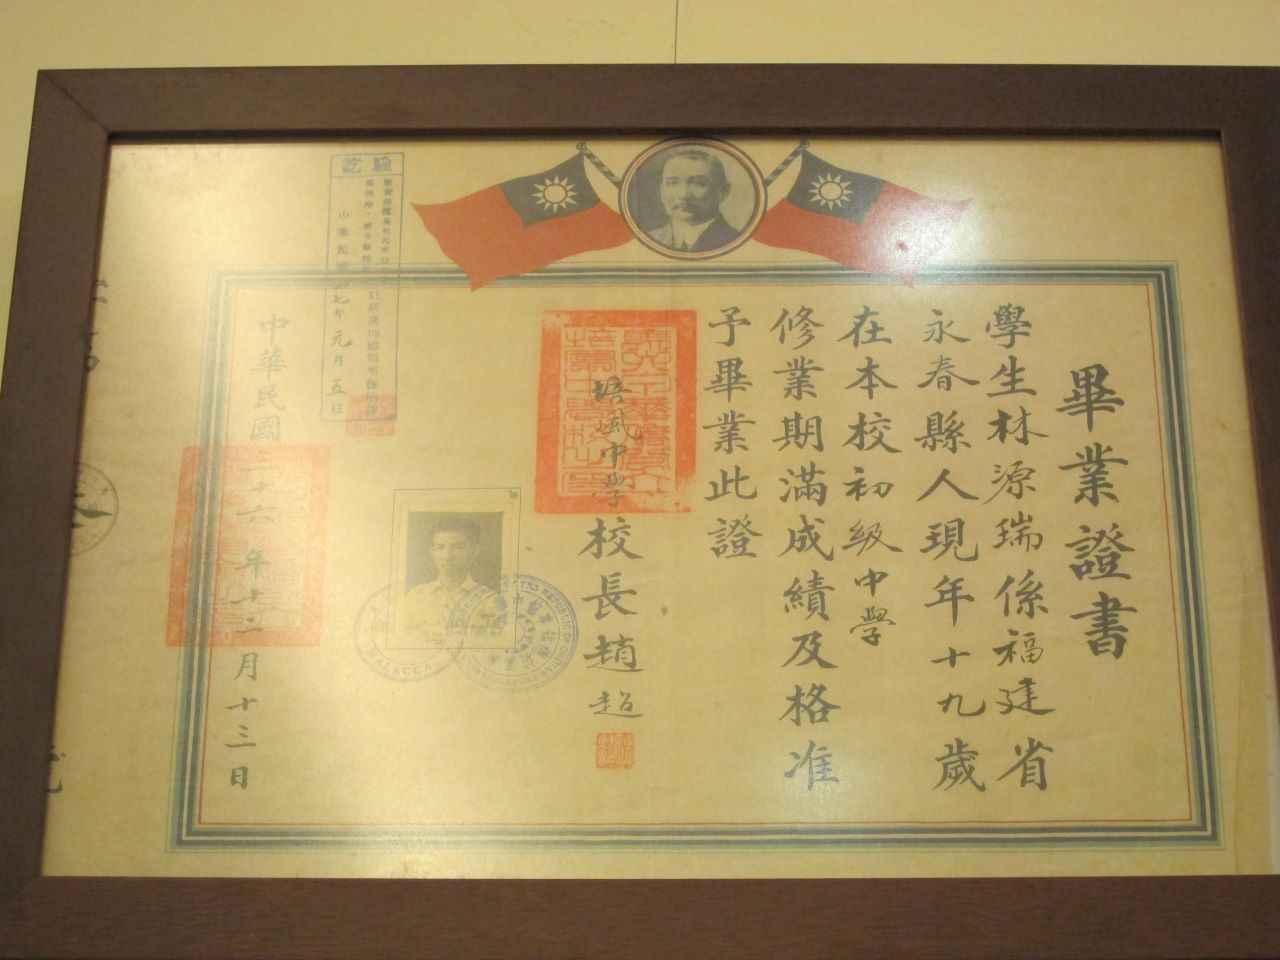 畢業證書
學生林源瑞係福建省
永春縣人現年十九歲
在本校初級中學
修業期滿成績及格准
予畢業此證
培風中學校長趙超
中華民國三十六年十二月十三日
驗訖
中華民國卅七年元月五日
MALACCA